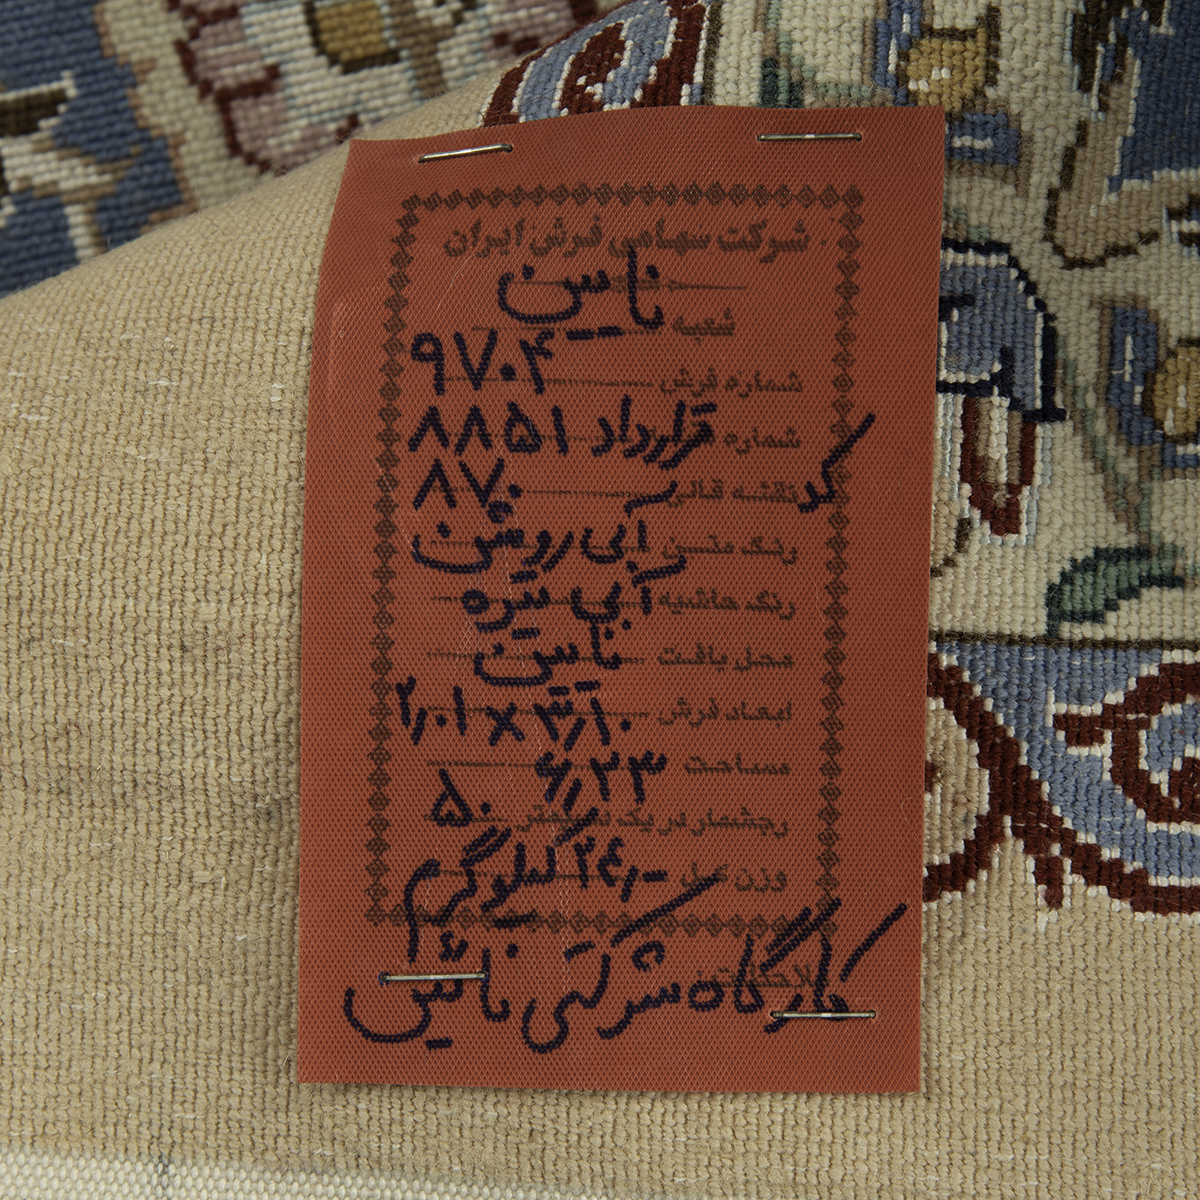 شرکت سهامی فرش ایران
شعبه نایین
شماره فرش ۹۷۰۴
شماره قرارداد ۸۸۵۱
کد نقشه قالی ۸۷۰
رنگ متن آبی روشن
رنگ حاشیه آبی تیره
محل بافت نایین
ابعاد فرش ۳٫۱۰ × ۲٫۰۱
مساحت ۶٫۲۳
رجشمار در یک ۵۰
وزن ۲۴٫- کیلوگرم
کارگاه شرکتی نائین